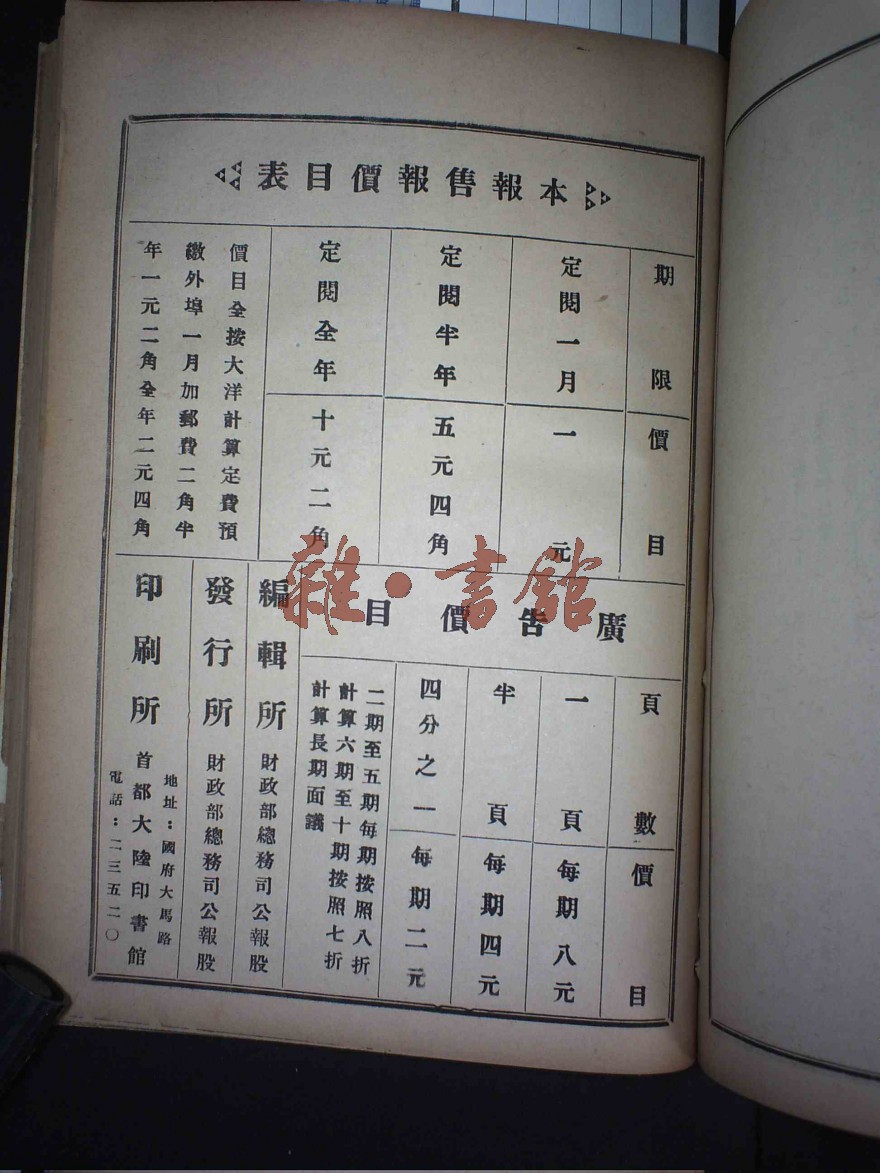 本報售報價目表
期限
價目
定閱一月
一元
定閱半年
五元四角
定閱全年
十元二角
價目全按大洋計算定費預
繳外埠一月加郵費二角半
年一元二角全年二元四角
廣告價目
頁數
價目
一頁
每期八元
半頁
每期四元
四分之一
每期二元
二期至五期每期按照八折
計算六期至十期按照七折
計算長期面議
編輯所 財政部總務司公報股
發行所 財政部總務司公報股
印刷所 首都大陸印書館
地址：國府大馬路
電話：二三五二〇
雜·書館